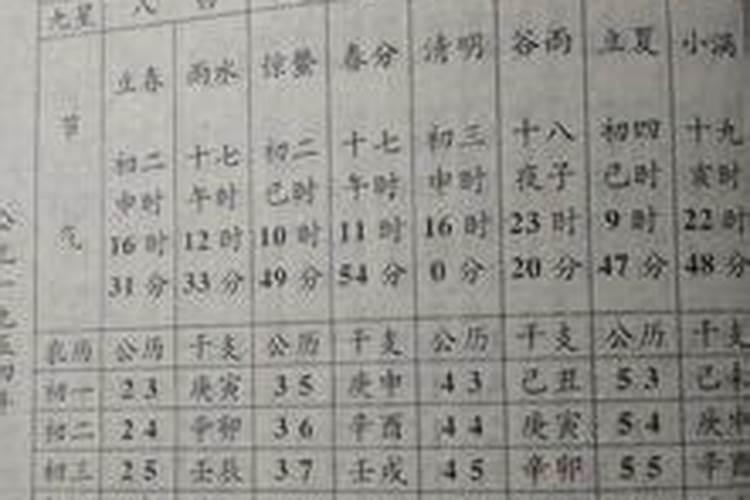 九星 八
节气 立春 雨水 惊蛰 春分 清明 谷雨 立夏 小满
初二 十七 初二 十七 初三 十八 初四 十九
申时 午时 巳时 午时 申时 夜子 巳时 亥时
16时 12时 10时 11时 16时 23时 9时 22时
31分 33分 49分 54分 0分 20分 47分 48分
农历 公历 干支 公历 干支 公历 干支 公历 干支
初一 2 3 庚寅 3 5 庚申 4 3 己丑 5 3 己未
初二 2 4 辛卯 3 6 辛酉 4 4 庚寅 5 4 庚申
初三 2 5 壬辰 3 7 壬戌 4 5 辛卯 5 5 辛酉